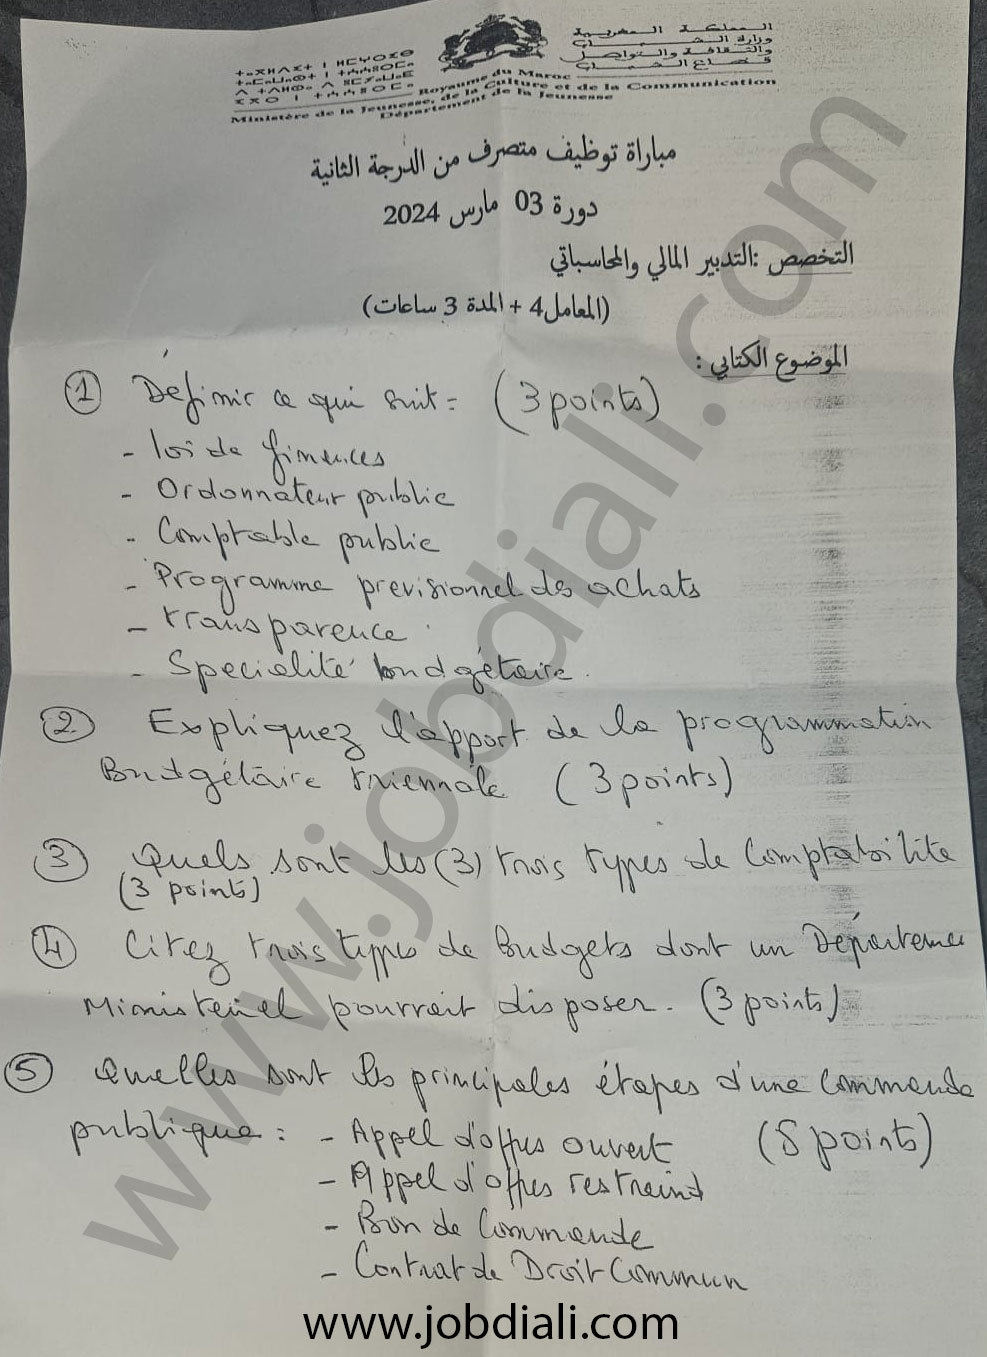 المملكة المغربية
وزارة الشباب
والثقافة والتواصل
قطاع الشباب
Royaume du Maroc
Ministère de la Jeunesse, de la Culture et de la Communication
Département de la Jeunesse
مباراة توظيف متصرف من الدرجة الثانية
دورة 03 مارس 2024
التخصص :التدبير المالي والمحاسباتي
(المعامل4 + المدة 3 ساعات)
الموضوع الكتابي :
① Définir ce qui suit : (3 points)
- loi de finances
- Ordonnateur public
- Comptable public
- Programme prévisionnel des achats
- transparence
- Spécialité budgétaire.
② Expliquez l'apport de la programmation
Budgétaire triennale (3 points)
③ Quels sont les (3) trois types de Comptabilité
(3 points)
④ Citez trois types de Budgets dont un Départeme
Ministériel pourrait disposer. (3 points)
⑤ Quelles sont les principales étapes d'une Commande
publique : - Appel d'offres ouvert (8 points)
- Appel d'offres restreint
- Bon de Commande
- Contrat de Droit Commun
www.jobdiali.com
www.jobdiali.com